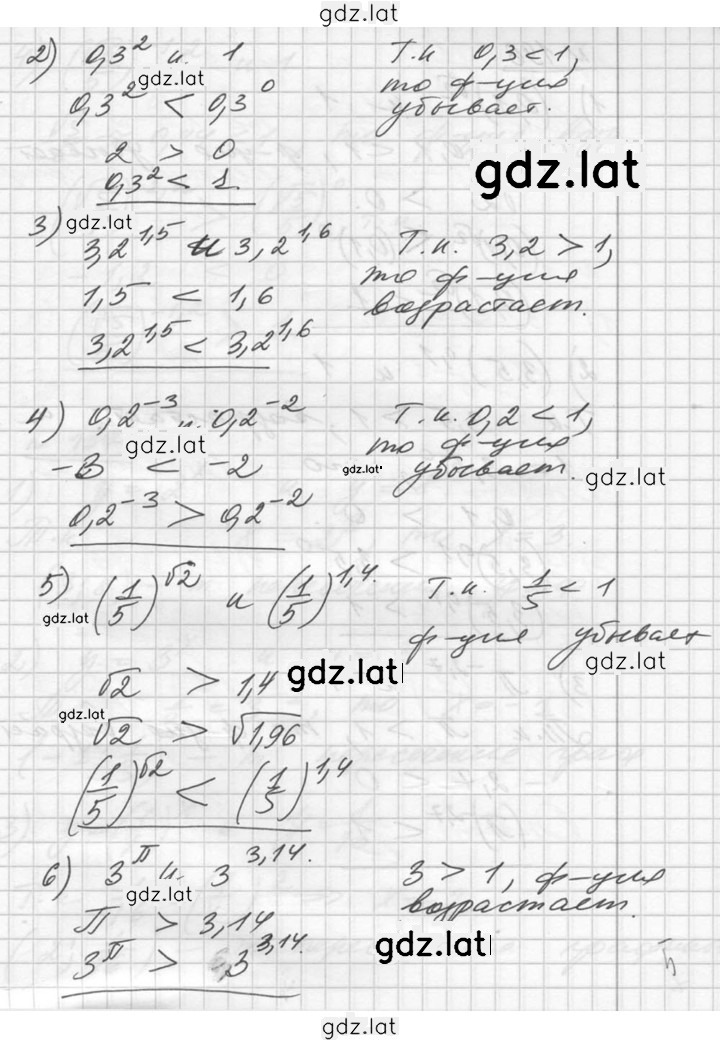 gdz.lat
2) 0,3² и 1 Т.к 0,3 < 1,
gdz.lat то ф-ция
0,3² < 0,3⁰ убывает.
2 > 0 gdz.lat
0,3² < 1.
3) gdz.lat
3,2^1,5 и 3,2^1,6 Т.к. 3,2 > 1,
то ф-ция
1,5 < 1,6 возрастает.
3,2^1,5 < 3,2^1,6
4) 0,2⁻³ и 0,2⁻² Т.к. 0,2 < 1,
gdz.lat то ф-ция
-3 < -2 gdz.lat убывает. gdz.lat
0,2⁻³ > 0,2⁻²
5) (1/5)^√2 и (1/5)^1,4. Т.к. 1/5 < 1
gdz.lat ф-ция убывает
gdz.lat
√2 > 1,4 gdz.lat
gdz.lat
√2 > √1,96
(1/5)^√2 < (1/5)^1,4
6) 3^π и 3^3,14. 3 > 1, ф-ция
gdz.lat возрастает.
π > 3,14
gdz.lat
3^π > 3^3,14.
gdz.lat